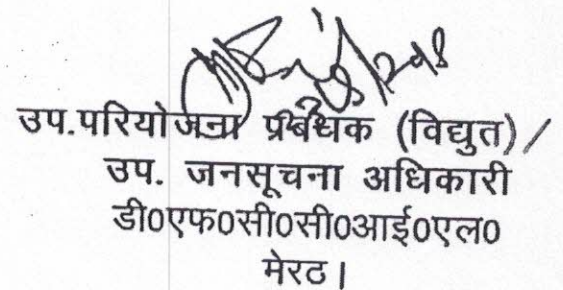 उप.परियोजना प्रबंधक (विद्युत) /
उप. जनसूचना अधिकारी
डी0एफ0सी0सी0आई0एल0
मेरठ।